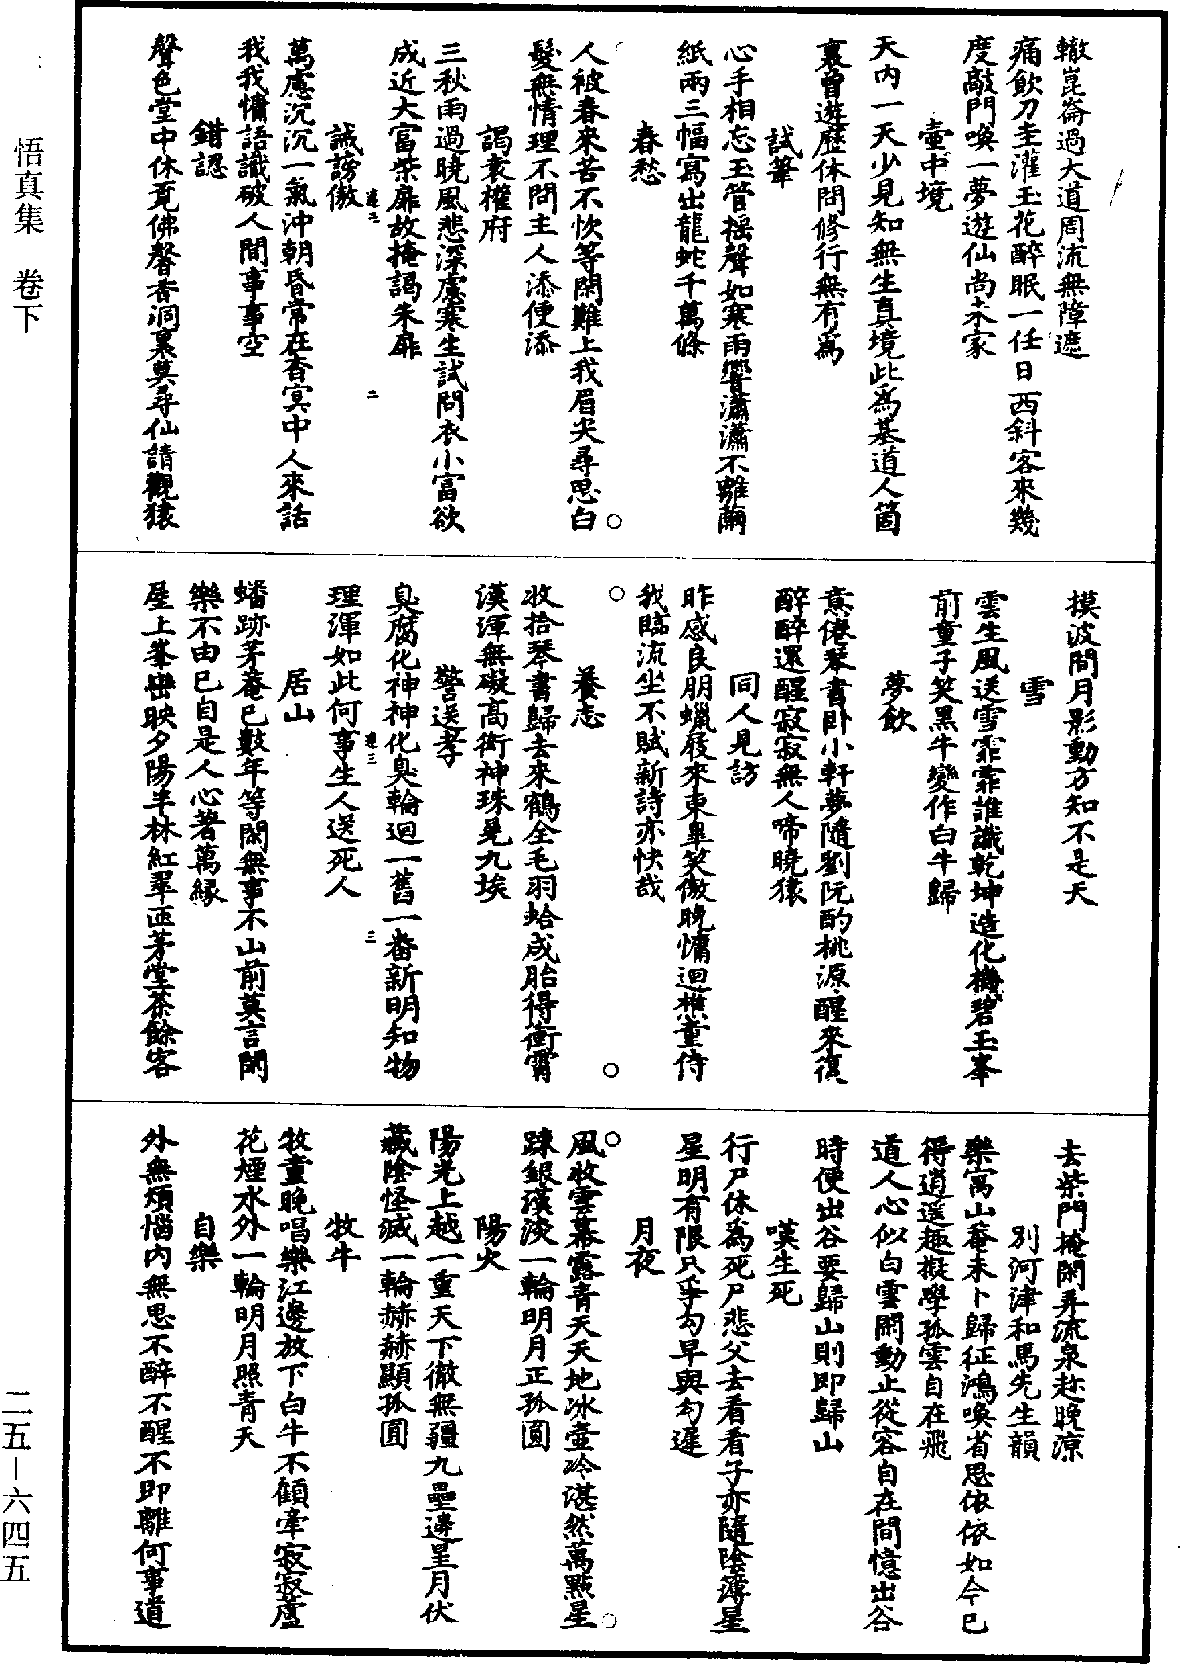 悟真集　卷下
轍崑崙過大道周流無障遮
痛飲刀圭灌玉花醉眠一任日西斜客來幾
度敲門喚一夢遊仙尚未家
壺中境
天內一天少見知無生真境此為基道人箇
裏曾遊歷休問修行無有為
試筆
心手相忘玉管搖聲如寒雨響瀟瀟不離繭
紙兩三幅寫出龍蛇千萬條
春愁
人被春來苦不忺等閑難上我眉尖尋思白
髮無情理不問主人添便添
謁袁權府
三秋雨過曉風悲深處寒生試問衣小富欲
成近大富柴扉故掩謁朱扉
誡謗傲
萬慮沉沉一氣沖朝昏常在杳冥中人來話
我我慵語識破人間事事空
錯認
聲色堂中休覓佛馨香洞裏莫尋仙請觀猿
摸波間月影動方知不是天
雪
雲生風送雪霏霏誰識乾坤造化機碧玉峯
前童子笑黑牛變作白牛歸
夢飲
意倦琴書卧小軒夢隨劉阮酌桃源醒來復
醉醉還醒寂寂無人啼曉猿
同人見訪
昨感良朋蠟屐來東皐笑傲晚慵迴樵童侍
我臨流坐不賦新詩亦快哉
養志
收拾琴書歸去來鶴全毛羽蛤成胎得衝霄
漢渾無礙高衒神珠晃九埃
警送孝
臭腐化神神化臭輪迴一舊一番新明知物
理渾如此何事生人送死人
居山
蟠跡茅菴已數年等閑無事不山前莫言閑
樂不由已自是人心著萬緣
屋上峯巒映夕陽半林紅翠匝茅堂茶餘客
去柴門掩閑弄流泉趁晚凉
別河津和馬先生韻
樂寓山菴未卜歸征鴻喚省思依依如今已
得逍遥趣擬學孤雲自在飛
道人心似白雲閑動止從容自在間憶出谷
時便出谷要歸山則即歸山
嘆生死
行尸休為死尸悲父去看看子亦隨陰薄星
星明有限只爭勾早與勾遲
月夜
風收雲幕露青天天地冰壺冷湛然萬點星
踈銀漢淡一輪明月正孤圓
陽火
陽光上越一重天下徹無疆九壘邊星月伏
藏陰怪滅一輪赫赫顯孤圓
牧牛
牧童晚唱樂江邊放下白牛不顧牽寂寂蘆
花煙水外一輪明月照青天
自樂
外無煩惱內無思不醉不醒不即離何事道
二五－六四五